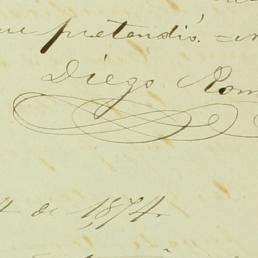 pretendió.
Diego Rom
4 de 1874.